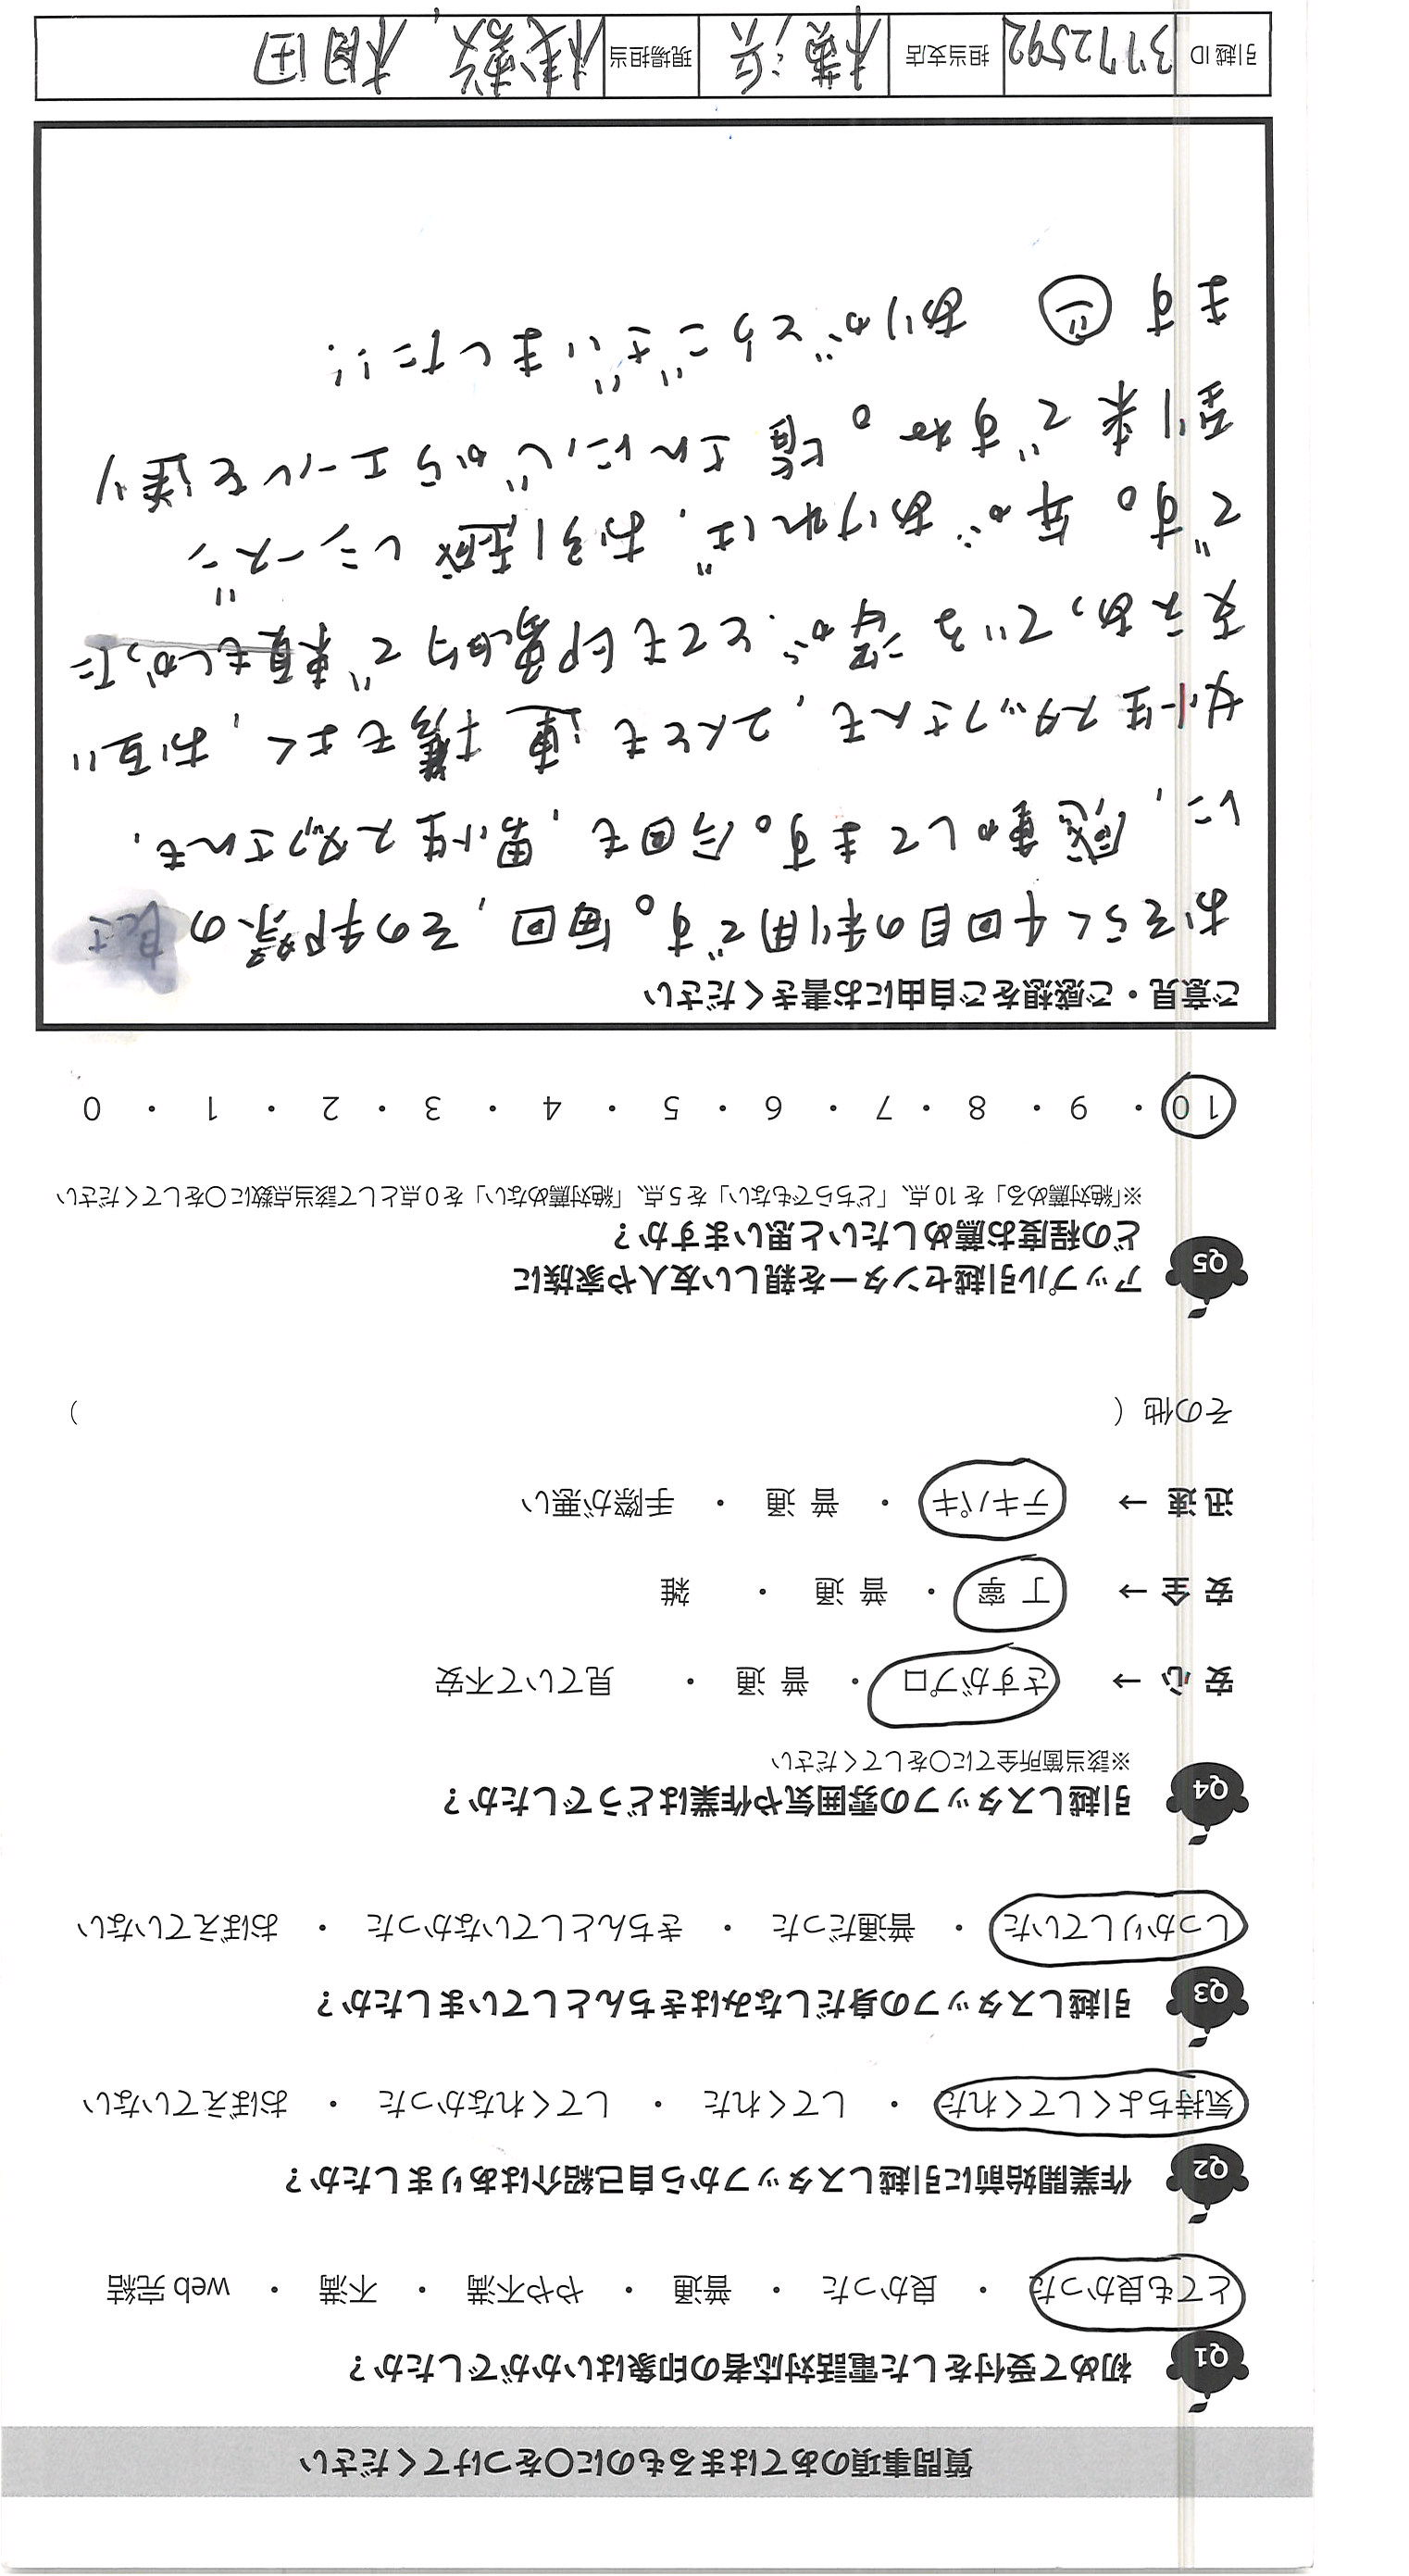 質問事項のあてはまるものに〇をつけてください
Q1 初めて受付をした電話対応者の印象はいかがでしたか？
とても良かった ・ 良かった ・ 普通 ・ やや不満 ・ 不満 ・ web 完結
Q2 作業開始前に引越しスタッフから自己紹介はありましたか？
気持ちよくしてくれた ・ してくれた ・ してくれなかった ・ おぼえていない
Q3 引越しスタッフの身だしなみはきちんとしていましたか？
しっかりしていた ・ 普通だった ・ きちんとしていなかった ・ おぼえていない
Q4 引越しスタッフの雰囲気や作業はどうでしたか？
※該当箇所全てに〇をしてください
安 心 → さすがプロ ・ 普 通 ・ 見ていて不安
安 全 → 丁 寧 ・ 普 通 ・ 雑
迅 速 → テキパキ ・ 普 通 ・ 手際が悪い
その他（ ）
Q5 アップル引越センターを親しい友人や家族に
どの程度お薦めしたいと思いますか？
※「絶対薦める」を 10 点、「どちらでもない」を 5 点、「絶対薦めない」を 0 点として該当点数に〇をしてください
10 ・ 9 ・ 8 ・ 7 ・ 6 ・ 5 ・ 4 ・ 3 ・ 2 ・ 1 ・ 0
ご意見・ご感想をご自由にお書きください
おそらく4回目の利用です。毎回、その手際の良さ
に、感動してます。今回も、男性スタッフさんも、
女性スタッフさんも、2人とも連携もよく、お互い
支えあっている姿が、とても印象的で 頼もしかった
です。年があければ、お引越しシーズン
到来ですね。皆さんに、心からエールを送り
ます ありがとうございました!!
引越 ID 3772592 担当支店 横浜 現場担当 相田